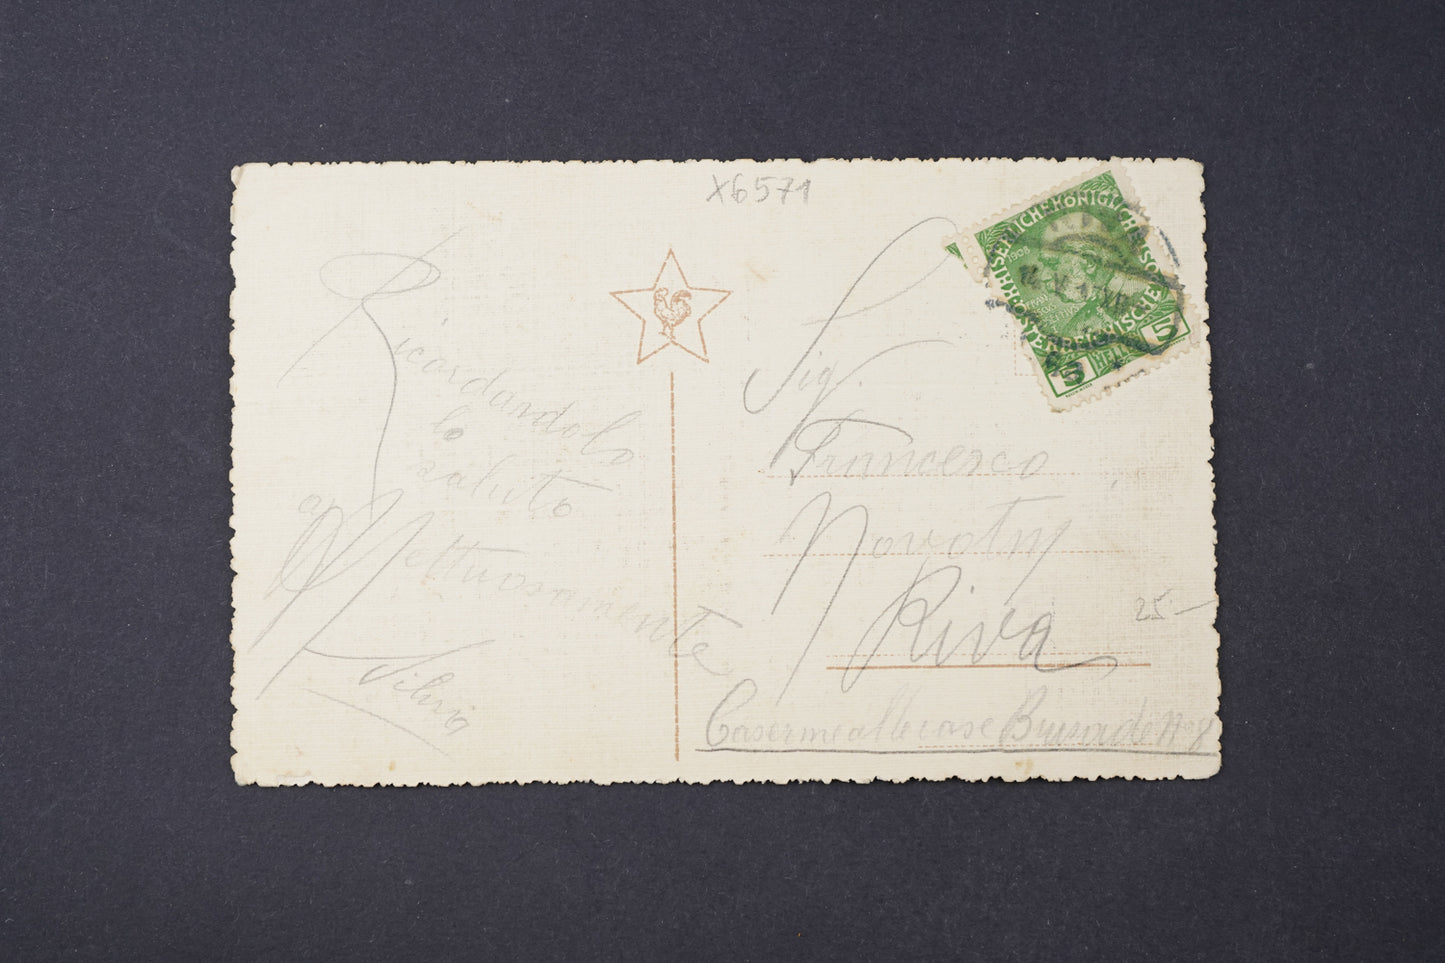 X6571
Ricordandolo
lo
saluto
affettuosamente
Silvia
Sig.
Francesco
Novotny
Riva
25 —
Caserme alle case Nº 8
KAISERLICHE KÖNIGLICHE
ÖSTERREICHISCHE
1908
5 HELLER 5